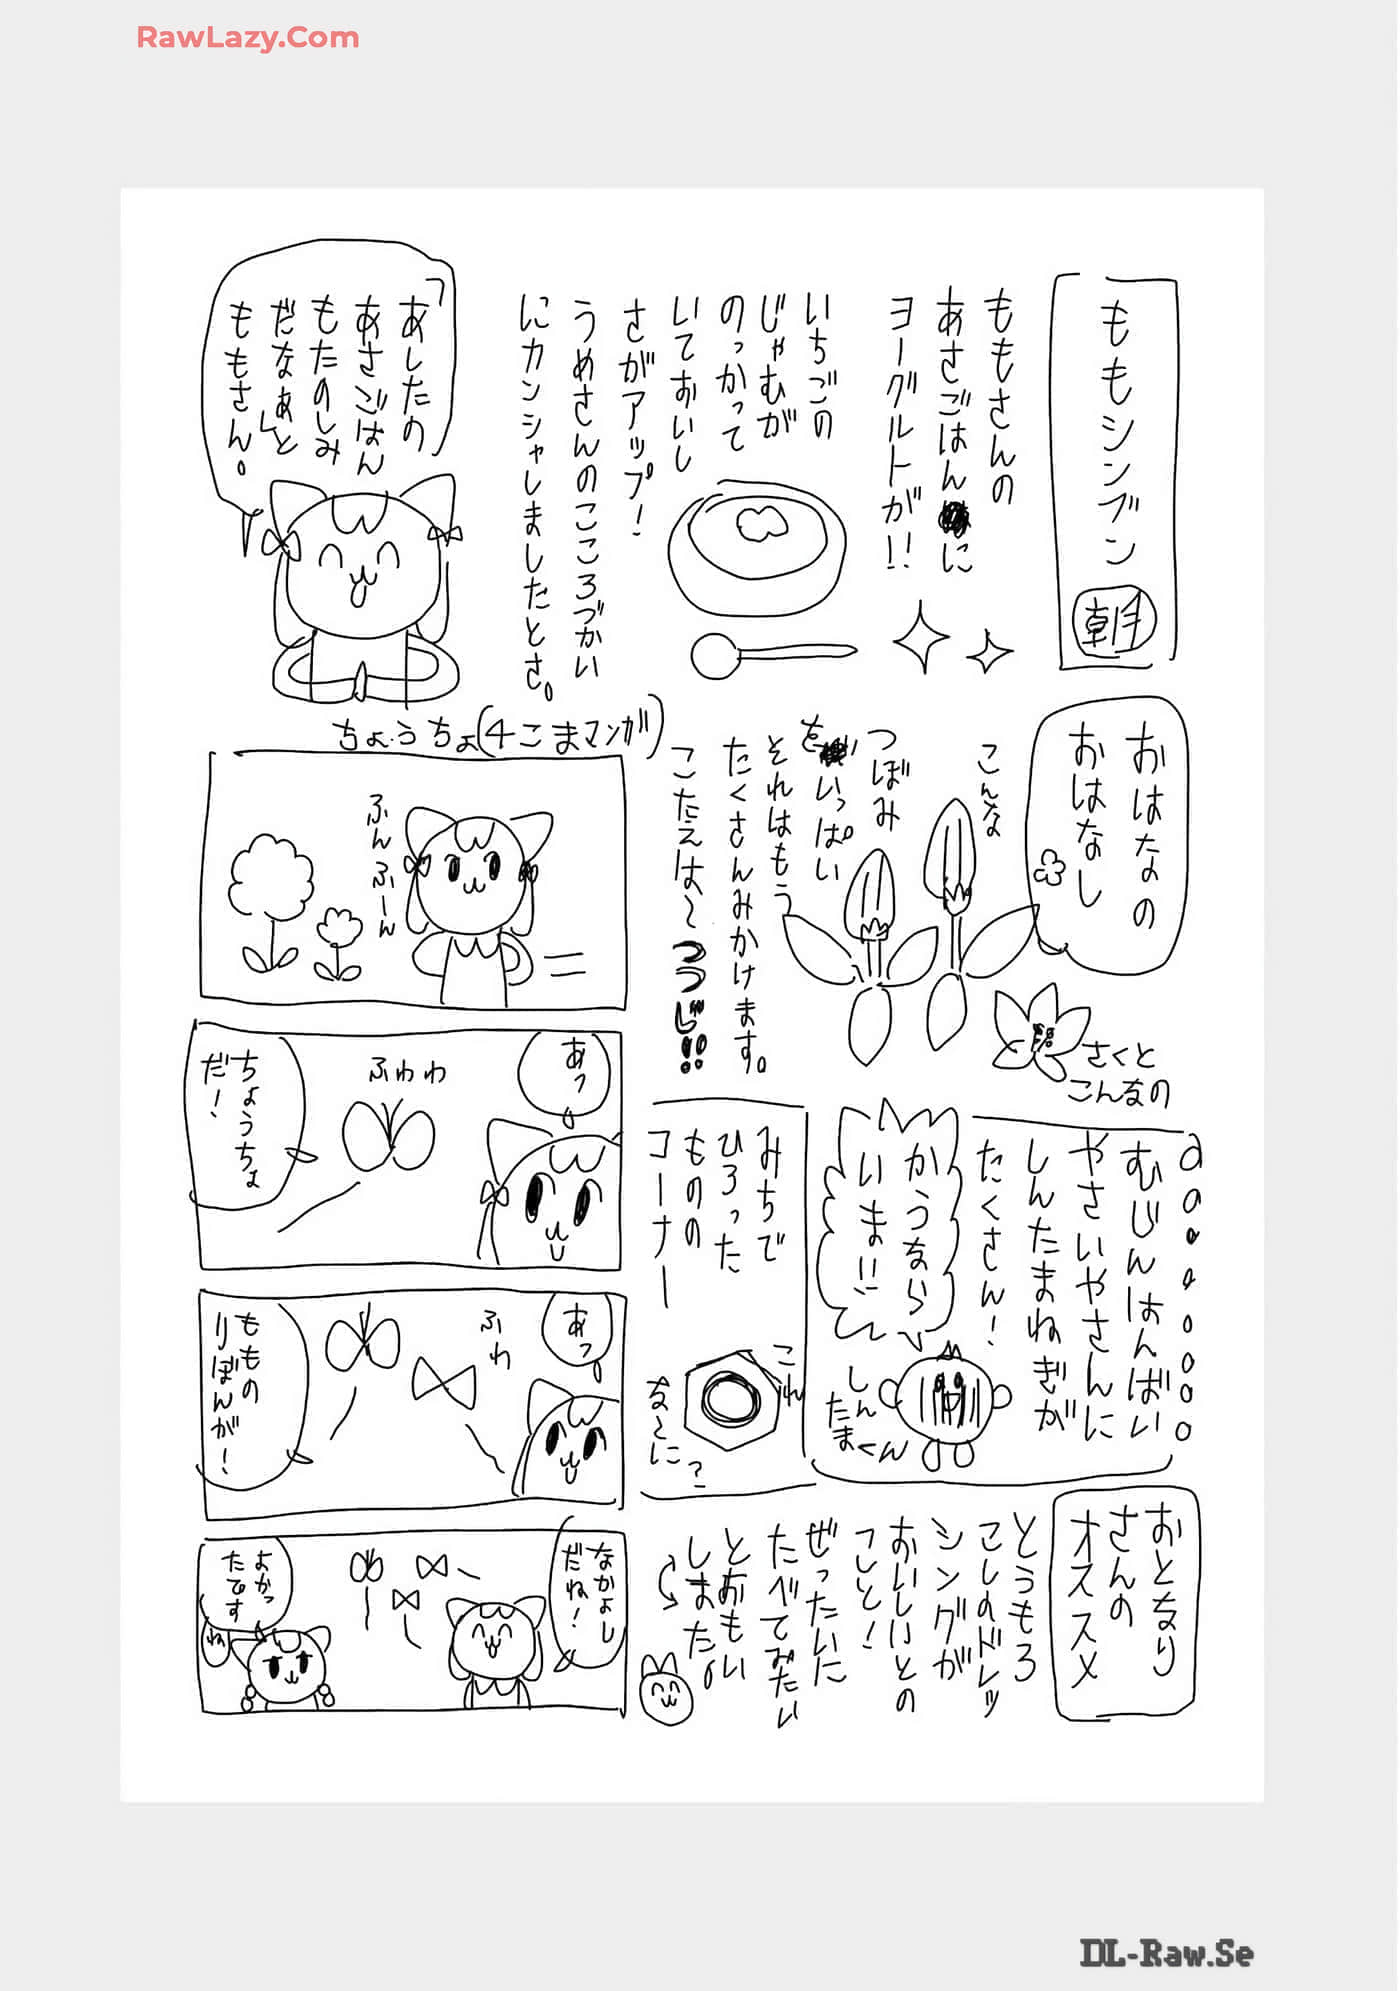 RawLazy.Com
ももシンブン
朝
ももさんの
あさごはんに
ヨーグルトが!!
いちごの
じゃむが
のっかって
いておいし
さがアップ!
うめさんのこころづかい
にカンシャしましたとさ。
「あしたの
あさごはん
もたのしみ
だなぁ」と
ももさん。
おはなの
おはなし
こんな
つぼみ
をいっぱい
それはもう
たくさんみかけます。
こたえは〜つつじ!!
さくと
こんなの
むじんはんばい
やさいやさんに
しんたまねぎが
たくさん!
かうなら
いま!!
しん
たまくん
みちで
ひろった
ものの
コーナー
これ
な〜に?
おとなり
さんの
オススメ
とうもろ
こしのドレッ
シングが
おいしいとの
こと!
ぜったいに
たべてみたい
とおもい
ました。
ちょうちょ(4こまマンガ)
ふんふーん
あっ
ふわわ
ちょうちょ
だ!
あっ
ふわ
ももの
りぼんが!
なかよし
だね!
よかっ
たです
ね
DL-Raw.Se